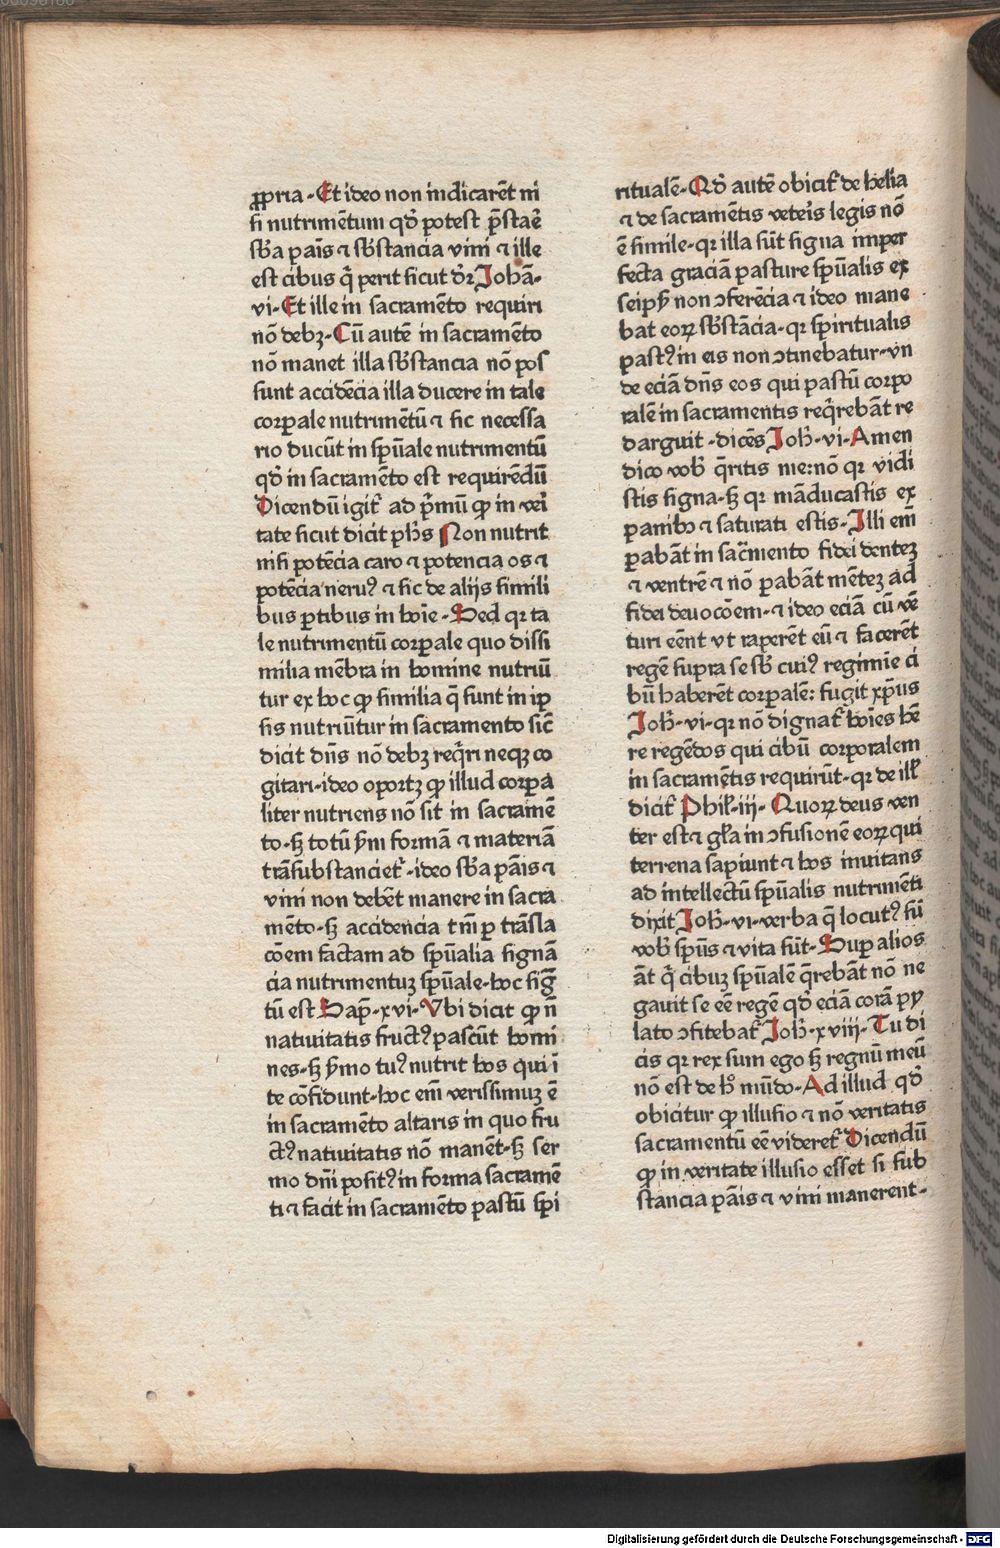 ꝓpria. Et ideo non indicarēt ni
si nutrimētum qď potest p̄staē
sb̄a pāis ⁊ sb̄stancia vini ⁊ ille
est cibus q̄ perit sicut dr̄ Johā.
vi. Et ille in sacramēto requiri
nō debꝫ. Cū autē in sacramēto
nō manet illa sb̄stancia nō pos
sunt accidēcia illa ducere in tale
corꝑale nutrimētū ⁊ sic necessa
rio ducūt in sp̄uale nutrimentū
qď in sacramēto est requirēdū
Dicendū igit̄ ad pͥmū ꝙ in veri
tate sicut dicit ph̄s Non nutrit
nisi potēcia caro ⁊ potencia os ⁊
potēcia neruꝰ ⁊ sic de alijs simili
bus ꝑtibus in hoīe. Sed qr ta
le nutrimentū corꝑale quo dissi
milia mēbra in homine nutriū
tur ex hoc ꝙ similia q̄ sunt in ip̄
sis nutriūtur in sacramento sic̄
dicit dn̄s nō debꝫ reqͥri neqꝫ co
gitari. ideo oportꝫ ꝙ illud corꝑa
liter nutriens nō sit in sacramē
to. sꝫ totū ẜm formā ⁊ materiā
trāsubstancieť. ideo sb̄a pāis ⁊
vini non debēt manere in sacra
mēto. sꝫ accidencia tm̄ ꝑ trāsla
cōem factam ad sp̄ualia signā
cia nutrimentuꝫ sp̄uale. hoc siḡ
tū est Sap̄. xvi. Vbi dicit ꝙ n̄
natiuitatis fructꝰ pascūt homi
nes. sꝫ ẜmo tuꝰ nutrit hos qui ī
te cōfidunt. hoc em̄ verissimuꝫ ē
in sacramēto altaris in quo fru
ctꝰ natiuitatis nō manēt. sꝫ ser
mo dn̄i positꝰ in forma sacramē
ti ⁊ facit in sacramēto pastū spi
ritualē. Qď autē obicit̄ de helia
⁊ de sacramētis veteris legis nō
ē simile. qr illa sūt signa imper
fecta graciā pasture sp̄ualis ex
seipsꝭ non ↄferēcia ⁊ ideo mane
bat eoꝝ sb̄stācia. qr spiritualis
pastꝰ in eis non ↄtinebatur. vn
de eciā dn̄s eos qui pastū corpo
ralē in sacramentis reqͥrebāt re
darguit. dicēs Joh̄. vi. Amen
dico vob̄ q̄ritis me: nō qr vidi
stis signa. sꝫ qr māducastis ex
panibꝰ ⁊ saturati estis. Illi em̄
ꝑabāt in sac̄mento fidei denteꝫ
⁊ ventrē ⁊ nō ꝑabāt mēteꝫ ad
fidei deuocōem. ⁊ ideo eciā cū vē
turi eēnt vt raperēt eū ⁊ facerēt
regē supra se sb̄ cuiꝰ regimīe ci
bū haberēt corꝑalē: fugit xp̄us
Joh̄. vi. qr nō dignat̄ hoīes hē
re regēdos qui cibū corporalem
in sacramētis requirūt. qr de ill̄
dicit̄ Phil̄. iij. Quoꝝ deus ven
ter est ⁊ gl̄a in ↄfusionē eoꝝ qui
terrena sapiunt ⁊ hos inuitans
ad intellectū sp̄ualis nutrimēti
dixit Joh̄. vi. verba q̄ locutꝰ sū
vob̄ sp̄us ⁊ vita sūt. Suꝑ alios
āt qͥ cibuꝫ sp̄ualē q̄rebāt nō ne
gauit se eē regē qď eciā corā py
lato ↄfitebat̄ Joh̄. xviii. Tu di
cis qr rex sum ego sꝫ regnū meū
nō est de hͦ mūdo. Ad illud qď
obicitur ꝙ illusio ⁊ nō veritatis
sacramentū eē videret̄ Dicendū
ꝙ in veritate illusio esset si sub
stancia pāis ⁊ vini manerent.
Digitalisierung gefördert durch die Deutsche Forschungsgemeinschaft - DFG